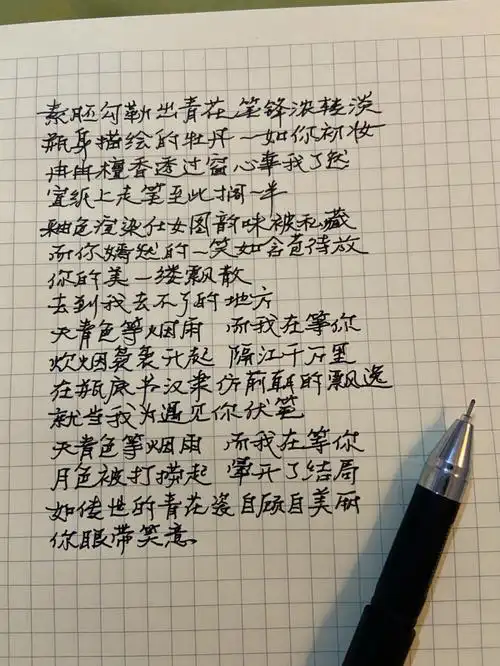 素胚勾勒出青花笔锋浓转淡
瓶身描绘的牡丹一如你初妆
冉冉檀香透过窗心事我了然
宣纸上走笔至此搁一半
釉色渲染仕女图韵味被私藏
而你嫣然的一笑如含苞待放
你的美一缕飘散
去到我去不了的地方
天青色等烟雨 而我在等你
炊烟袅袅升起 隔江千万里
在瓶底书汉隶仿前朝的飘逸
就当我为遇见你伏笔
天青色等烟雨 而我在等你
月色被打捞起 晕开了结局
如传世的青花瓷自顾自美丽
你眼带笑意